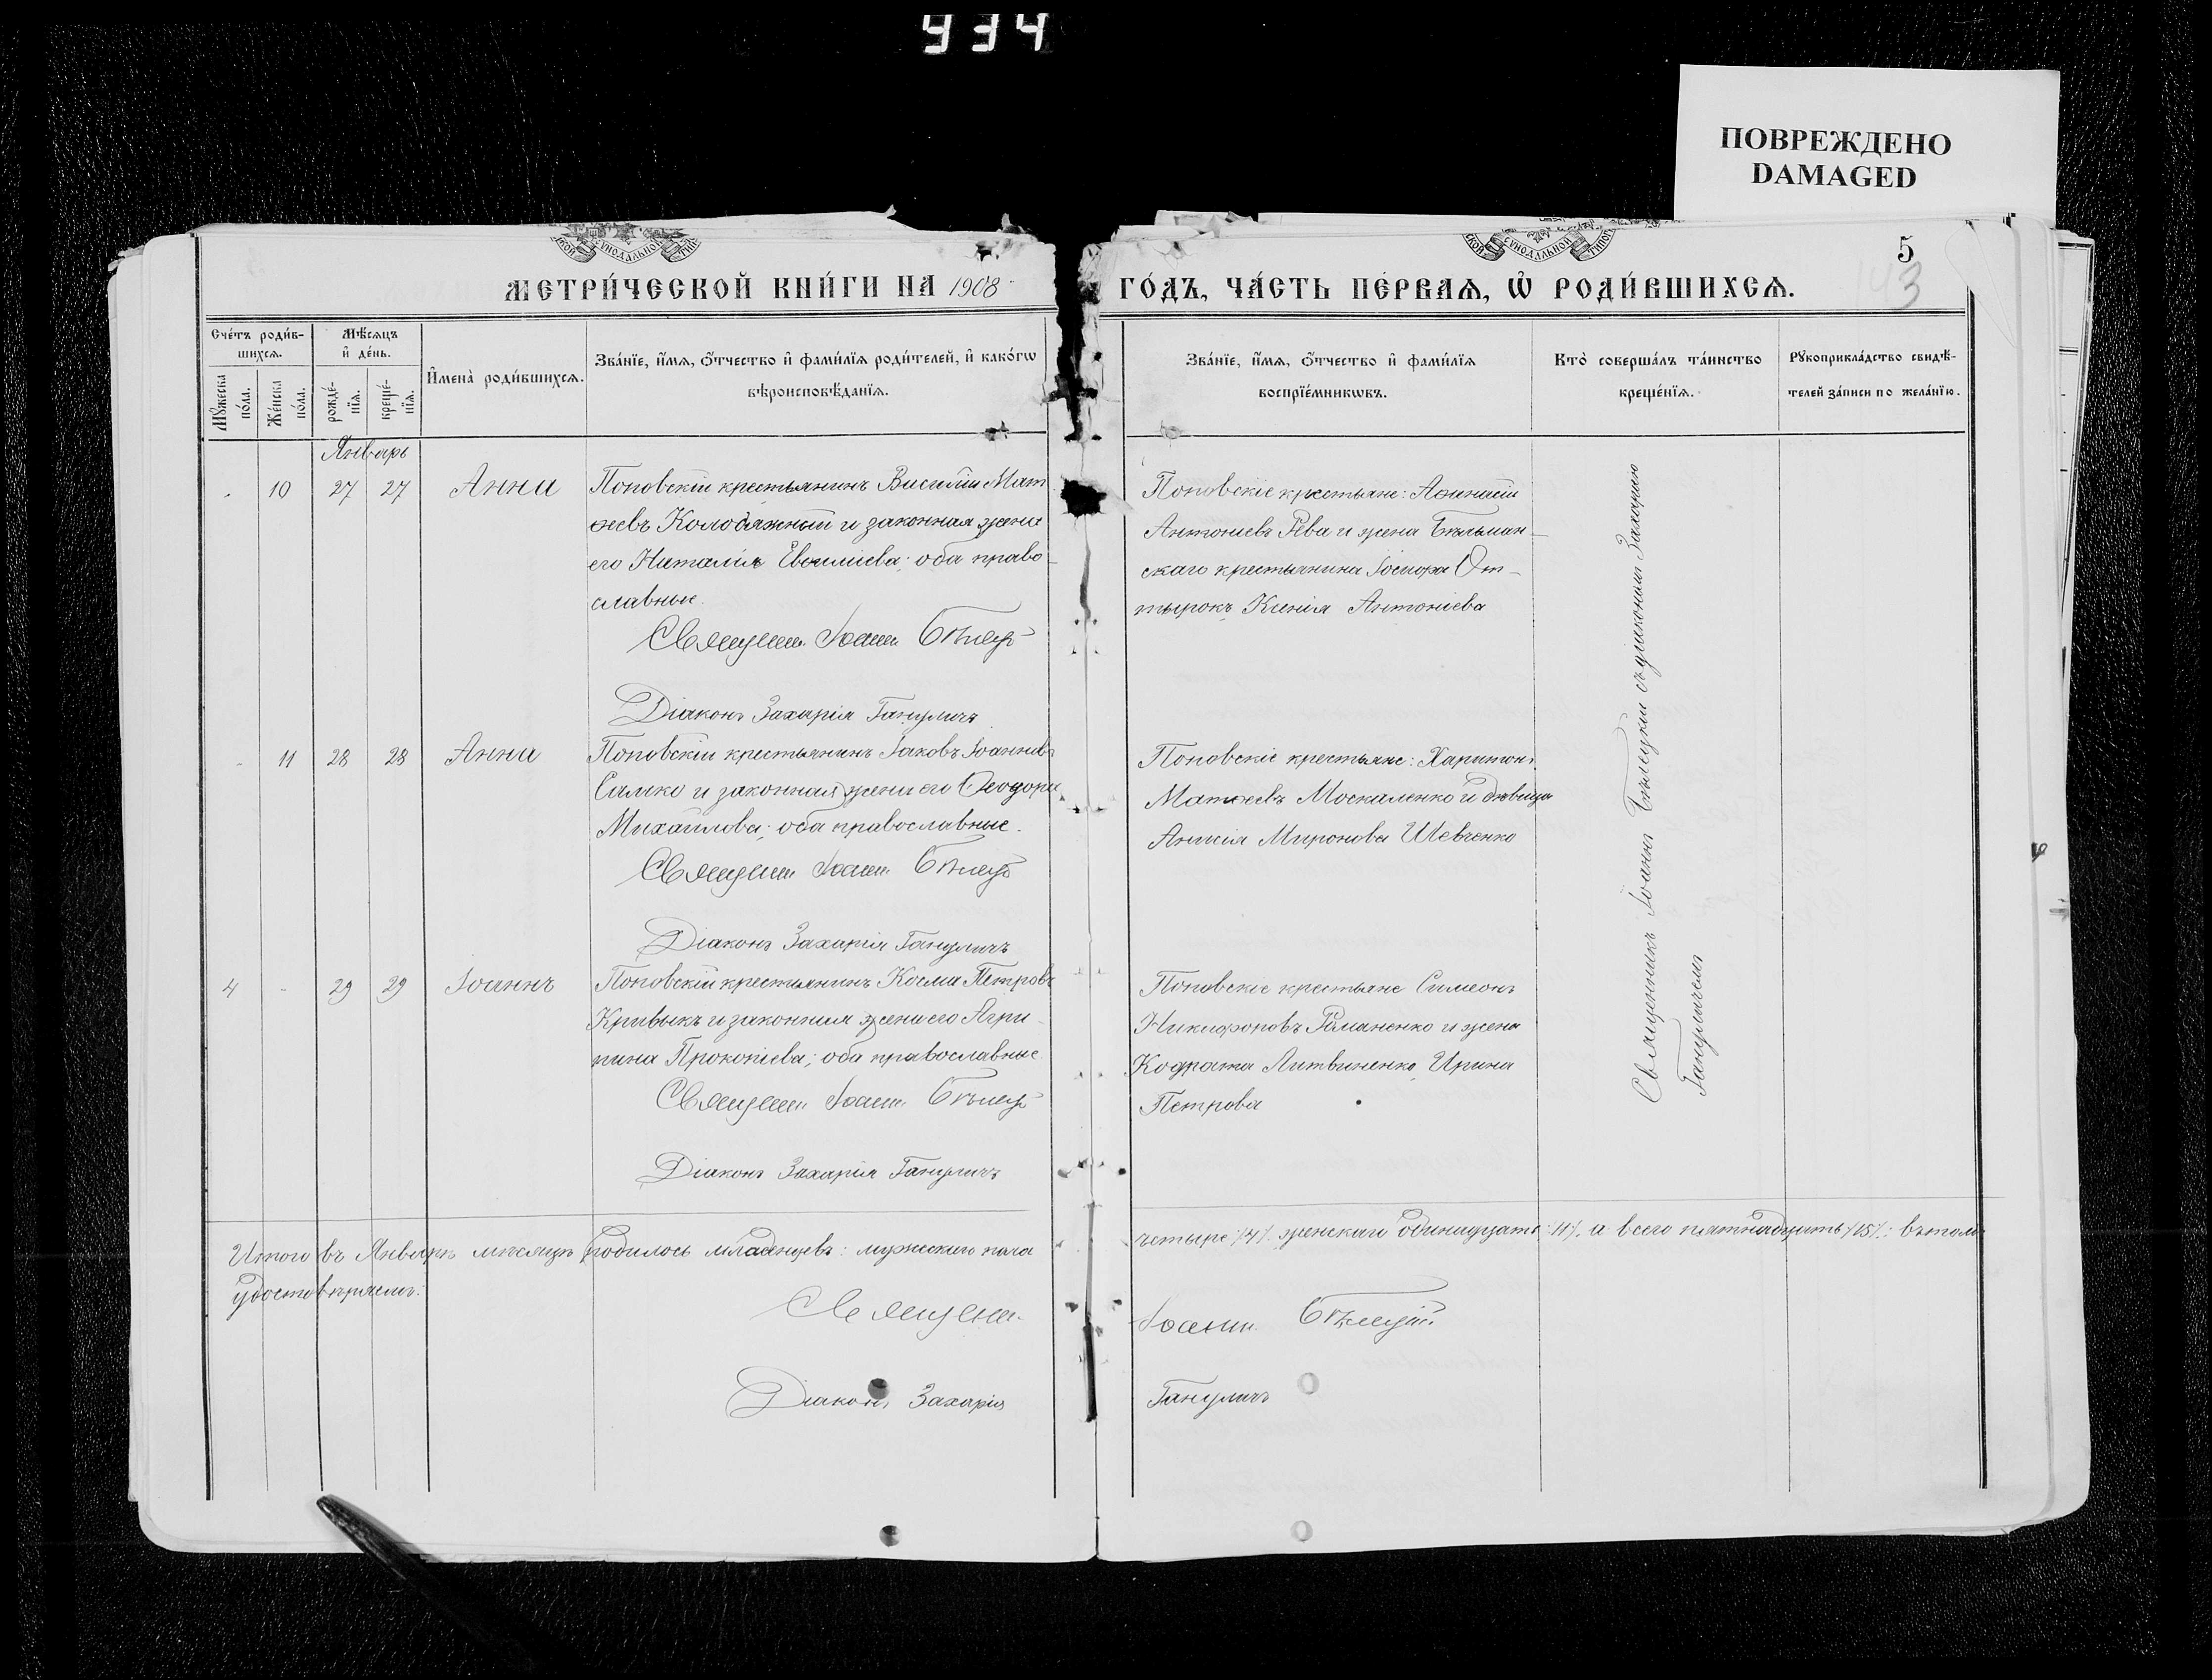 934
ПОВРЕЖДЕНО
DAMAGED
5
3
МЕТРИ́ЧЕСКОЙ КНИ́ГИ НА 1908 ГО́ДЪ, ЧА́СТЬ ПЕ́РВАѦ, Ѡ҆ РОДИ́ВШИХСѦ.
Сче́тъ роди́в-
шихсѧ.
Мꙋ́жеска по́ла.
Же́нска по́ла.
Мѣ́сѧцъ
и҆ де́нь.
рожде́-
нїѧ.
креще́-
нїѧ.
И҆мена̀ роди́вшихсѧ.
Зва́нїе, и҆́мѧ, ѻ҆́тчество и҆ фами́лїѧ роди́телей, и҆ како́гѡ
вѣроисповѣ́данїѧ.
Зва́нїе, и҆́мѧ, ѻ҆́тчество и҆ фами́лїѧ
воспрїе́мникѡвъ.
Кто̀ соверша́лъ та́инство
креще́нїѧ.
Рꙋкоприкла́дство свидѣ́-
телей за́писи по жела́нїю.
Январь
- 10 27 27 Анна
Поповскій крестьянинъ Василій Мат
ѳеевъ Колодяжный и законная жена
его Наталія Евѳиміева; оба право-
славные.
Священн. Іоанн Бѣлец
Діаконъ Захарія Ганулич
Поповскіе крестьяне: Аѳанасій
Антоніевъ Рева и жена Бѣльман-
скаго крестьянина Іосифа От-
тырокъ Ксенія Антоніева
- 11 28 28 Анна
Поповскій крестьянинъ Іаковъ Іоанновъ
Самко и законная жена его Ѳеодора
Михаилова; оба православные.
Священн. Іоанн. Бѣлец
Діаконъ Захарія Гануличъ
Поповскіе крестьяне: Харитонъ
Матѳеевъ Москаленко и дѣвица
Анисія Миронова Шевченко
4 - 29 29 Іоаннъ
Поповскій крестьянинъ Косма Петровъ
Кривыкъ и законная жена его Агри-
пина Прокопіева; оба православные
Священн. Іоанн. Бѣлец
Діаконъ Захарія Гануличъ
Поповскіе крестьяне Симеонъ
Никифоровъ Романенко и жена
Кодрата Литвиненко, Ирина
Петрова
Священникъ Іоаннъ Бѣлецкій съ діакономъ Захаріею
Гануличемъ
Итого въ Январѣ мѣсяцѣ родилось младенцевъ: мужескаго пола четыре /4/. женскаго одинадцать /11/. а всего пятнадцать /15/: въ томъ
удостовѣряемъ:
Священн. Іоанн. Бѣлецкій
Діаконъ Захарія Гануличъ